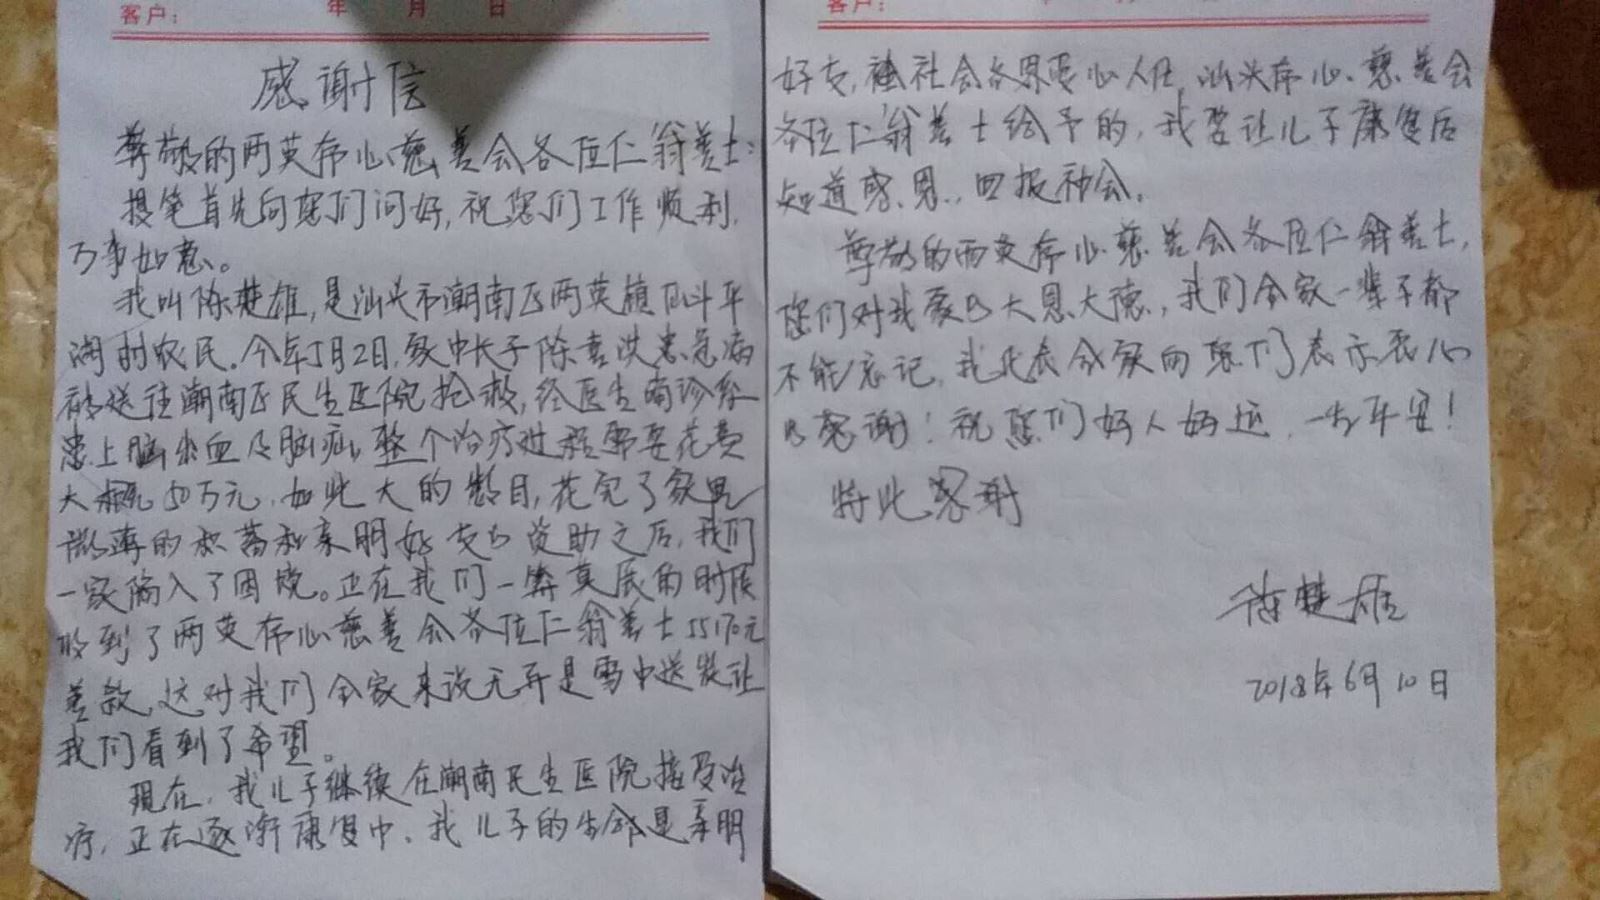 客户： 年 月 日
感谢信
尊敬的两英存心慈善会各位仁翁善士：
提笔首先向您们问好，祝您们工作顺利，
万事如意。
我叫陈楚雄，是汕头市潮南区两英镇仙斗平
湖村农民。今年5月2日，家中长子陈喜洪患急病
被送往潮南区民生医院抢救，经医生确诊系
患上脑出血及脑疝，整个治疗过程需要花费
大概50万元，如此大的数目，花完了家里
微薄的积蓄和亲朋好友的资助之后，我们
一家陷入了困境。正在我们一筹莫展的时候
收到了两英存心慈善会各位仁翁善士55170元
善款，这对我们全家来说无弄是雪中送炭让
我们看到了希望。
现在，我儿子继续在潮南民生医院接受治
疗，正在逐渐康复中，我儿子的生命是亲朋
客户：
好友，社会各界爱心人仕，汕头存心慈善会
各位仁翁善士给予的，我要让儿子康复后
知道感恩，回报社会。
尊敬的两英存心慈善会各位仁翁善士，
您们对我家的大恩大德，我们全家一辈子都
不能忘记，我代表全家向您们表示衷心
的感谢！祝您们好人好运，一生平安！
特此感谢
陈楚雄
2018年6月10日